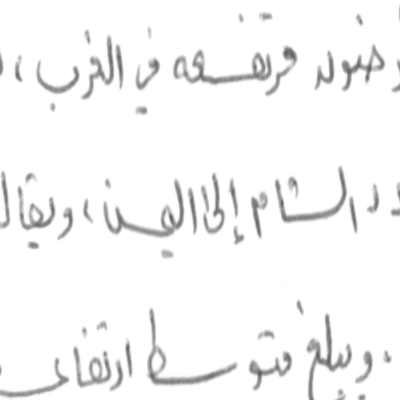 مرتفعه في الغرب ،
الشام إلى اليمن ، ويقال
، ويبلغ متوسط ارتفاع